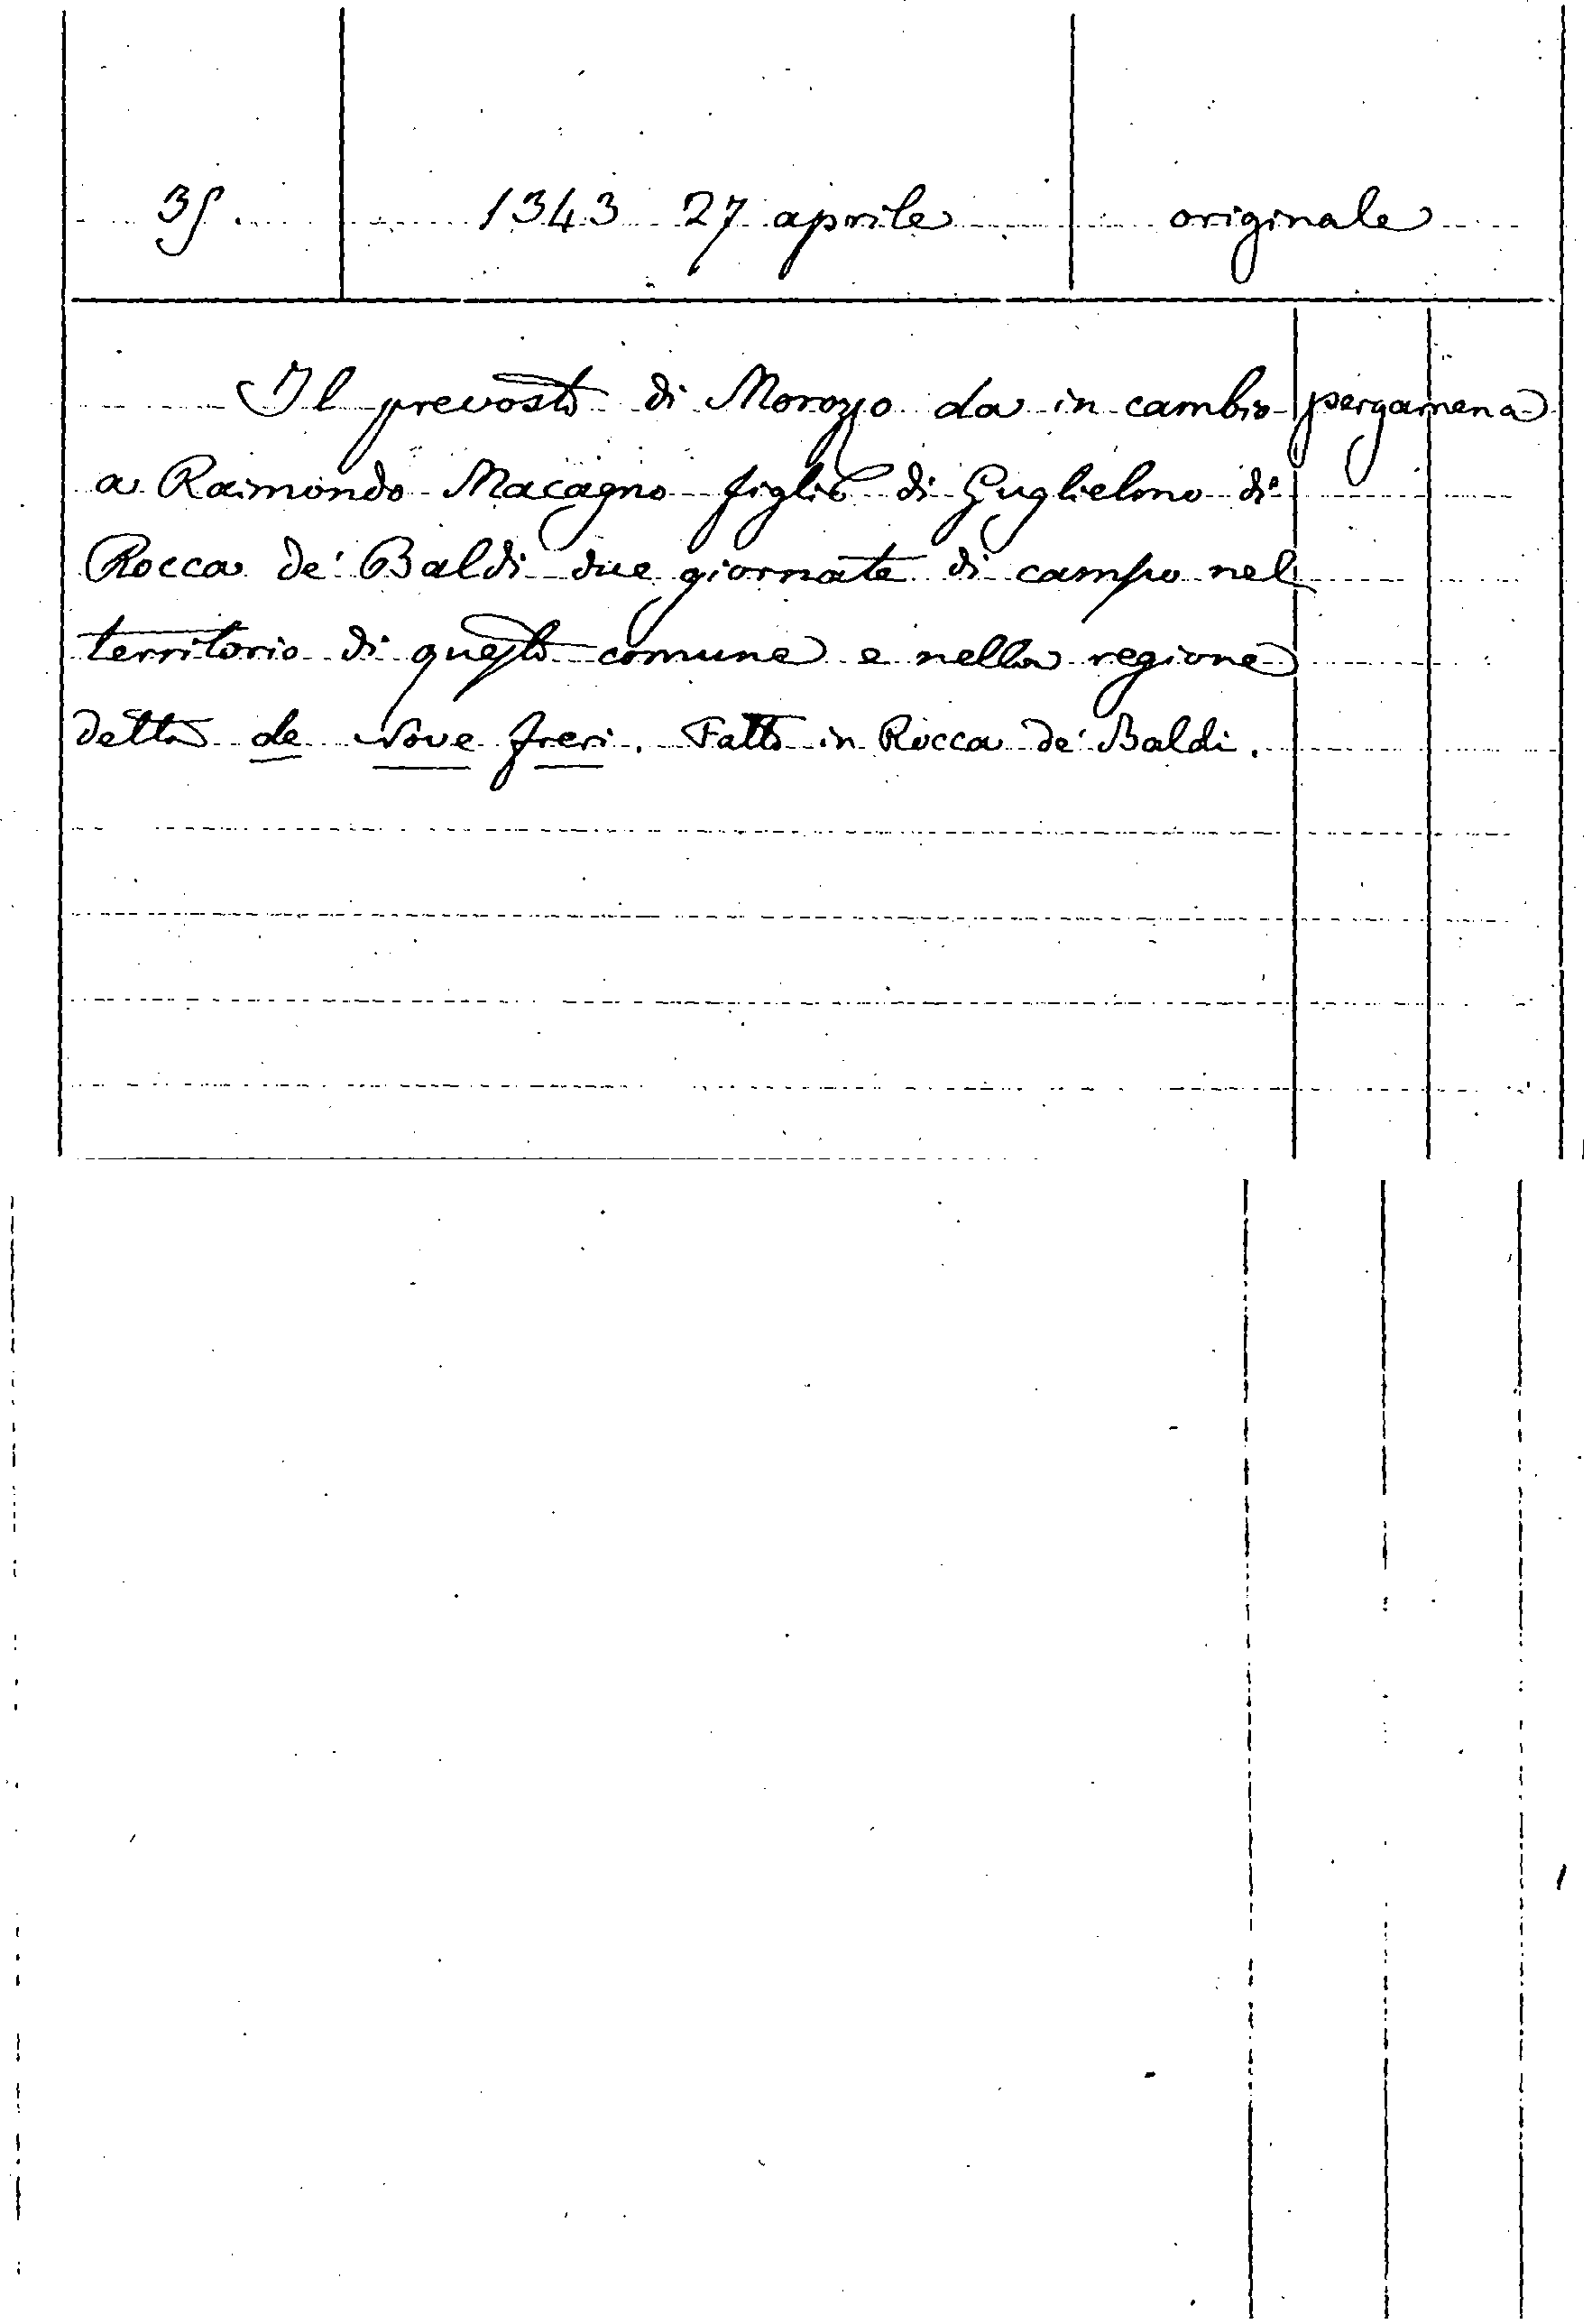 35. 1343 27 aprile originale
Il prevosto di Morozzo da in cambio pergamena
a Raimondo Macagno figlio di Guglielmo di
Rocca de' Baldi due giornate di campo nel
territorio di questo comune e nella regione
detta de Nove freri. Fatto in Rocca de' Baldi.